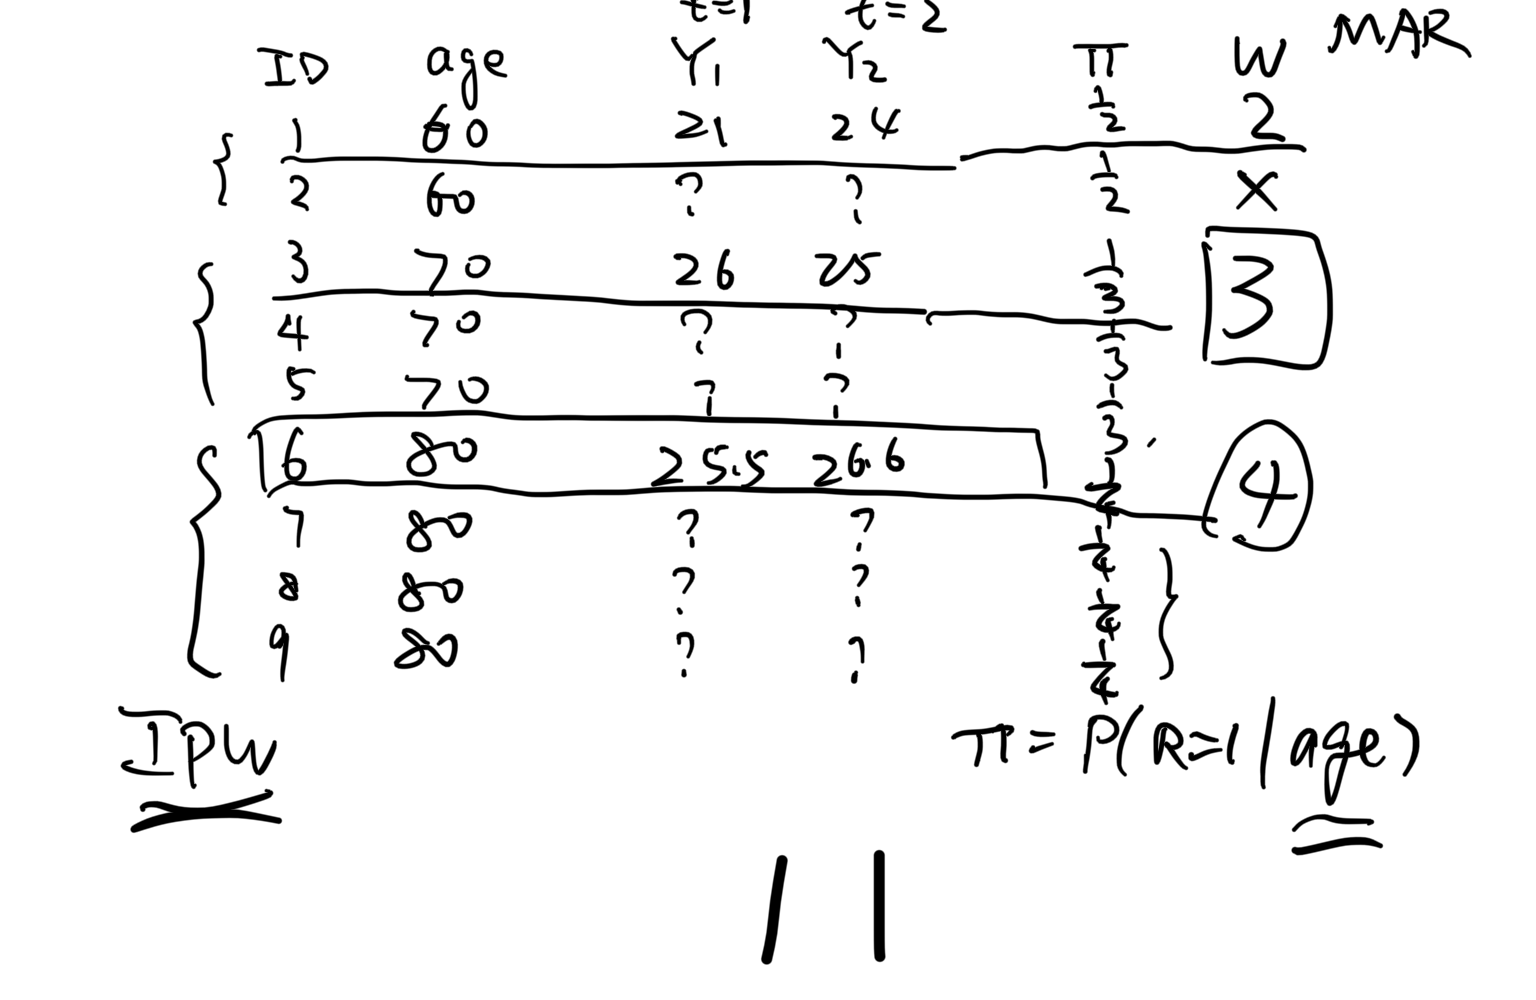 t=1 t=2
MAR
ID age Y₁ Y₂ π W
1 60 21 24 1/2 2
2 60 ? ? 1/2 X
3 70 26 25 1/3 3
4 70 ? ? 1/3
5 70 ? ? 1/3
6 80 25.5 26.6 1/4 4
7 80 ? ? 1/4
8 80 ? ? 1/4
9 80 ? ? 1/4
IPW
π = P(R=1 | age)